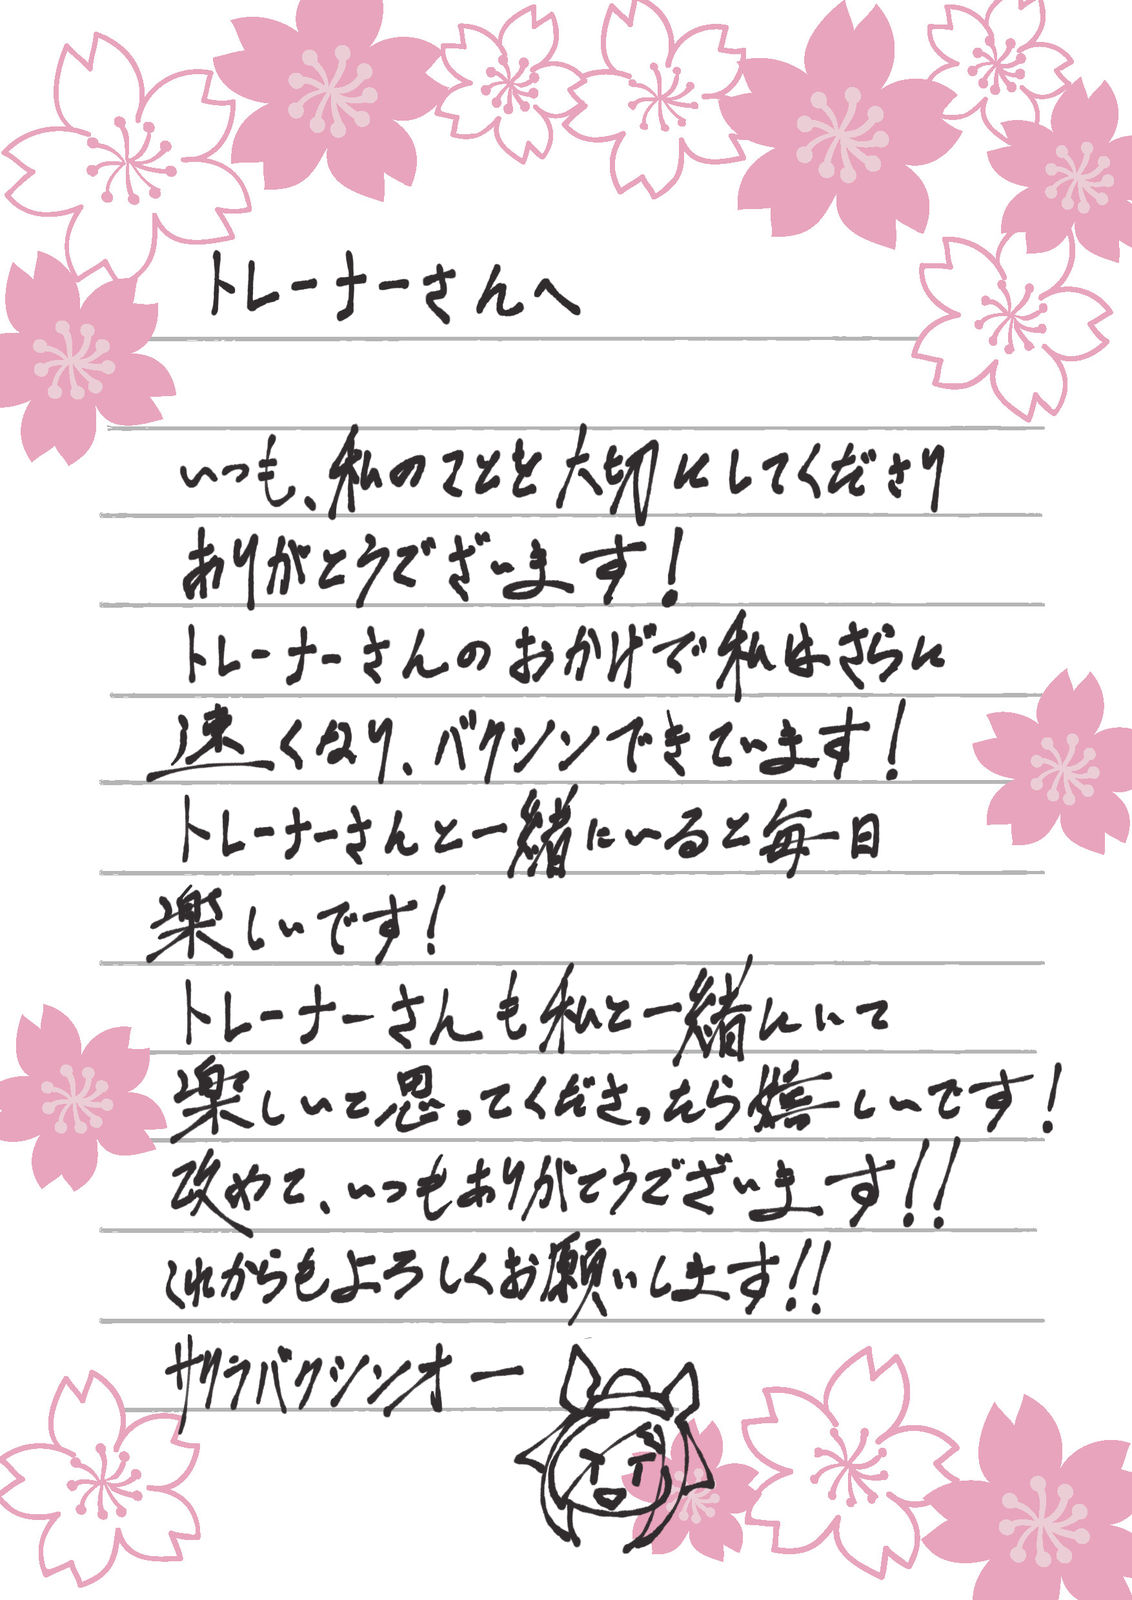 トレーナーさんへ
いつも、私のことを大切にしてくださり
ありがとうございます！
トレーナーさんのおかげで私はさらに
速くなり、バクシンできています！
トレーナーさんと一緒にいると毎日
楽しいです！
トレーナーさんも私と一緒にいて
楽しいと思ってくださったら嬉しいです！
改めて、いつもありがとうございます!!
これからもよろしくお願いします!!
サクラバクシンオー